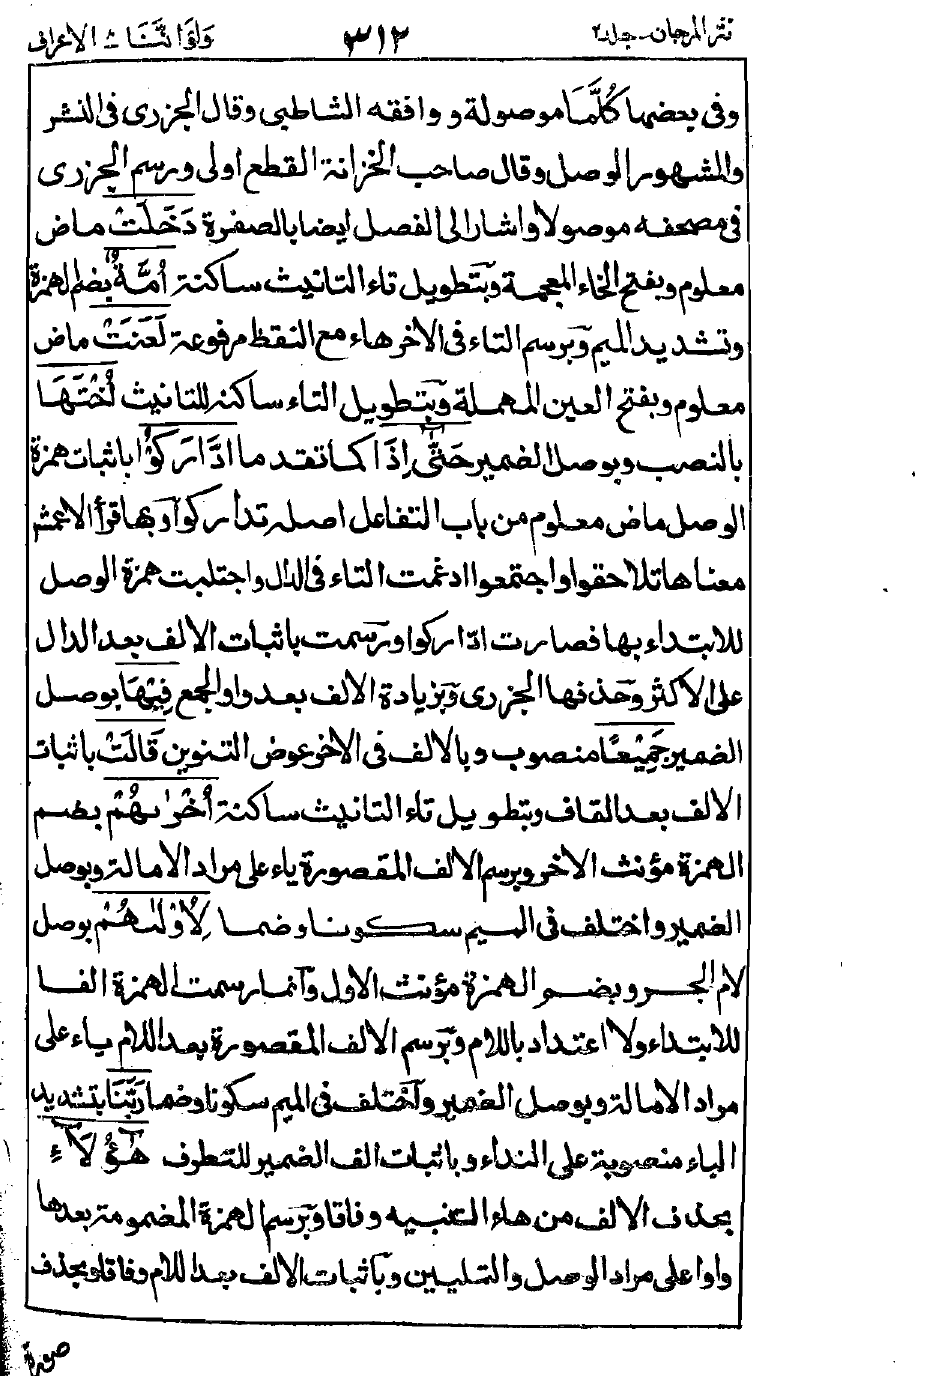 نثر المرجان - جلد ٢ ٣١٢ ولو اننا ٨ الاعراف
وفى بعضها كُلَّمَا موصولة و وافقه الشاطبى وقال الجزرى فى النشر
والمشهور الوصل وقال صاحب الخزانة القطع اولى ورسم الجزرى
فى مصحفه موصولا واشار الى الفصل ايضا بالصفرة دَخَلَتْ ماض
معلوم وبفتح الخاء المعجمة وبتطويل تاء التانيث ساكنة اُمَّةٌ بضم الهمزة
وتشديد الميم وبرسم التاء فى الاخر هاء مع النقط مرفوعة لَعَنَتْ ماض
معلوم وبفتح العين المهملة وبتطويل التاء ساكنة للتانيث اُخْتَهَا
بالنصب وبوصل الضمير حَتّٰى اِذَا كما تقدما ادَّارَكُوْا باثبات همزة
الوصل ماض معلوم من باب التفاعل اصله تدأركوا وبها قرأ الاعمش
معناها تلاحقوا واجتمعوا ادغمت التاء فى الدال واجتلبت همزة الوصل
للابتداء بها فصارت ادّاركوا ورسمت باثبات الالف بعد الدال
على الاكثر وحذفها الجزرى وبزيادة الالف بعد واو الجمع فِيْهَا بوصل
الضمير جَمِيْعًا منصوب وبالالف فى الاخر عوض التنوين قَالَتْ باثبات
الالف بعد القاف وبتطويل تاء التانيث ساكنة اُخْرٰىهُمْ بضم
الهمزة مؤنث الاخر وبرسم الالف المقصورة ياء على مراد الامالة وبوصل
الضمير واختلف فى الميم سكونا وضما لِاُوْلٰىهُمْ بوصل
لام الجر وبضم الهمزة مؤنث الاول وانما رسمت الهمزة الفا
للابتداء ولا اعتداد باللام وبرسم الالف المقصورة بعد اللام ياء على
مراد الامالة وبوصل الضمير واختلف فى الميم سكونا وضما رَبَّنَا بتشديد
الباء منصوبة على النداء وباثبات الف الضمير للتطرف هٰٓؤُلَآءِ
بحذف الالف من هاء التنبيه وفاقا وبرسم الهمزة المضمومة بعدها
واوا على مراد الوصل والتليين وباثبات الالف بعد اللام وفاقا وبحذف
صورة